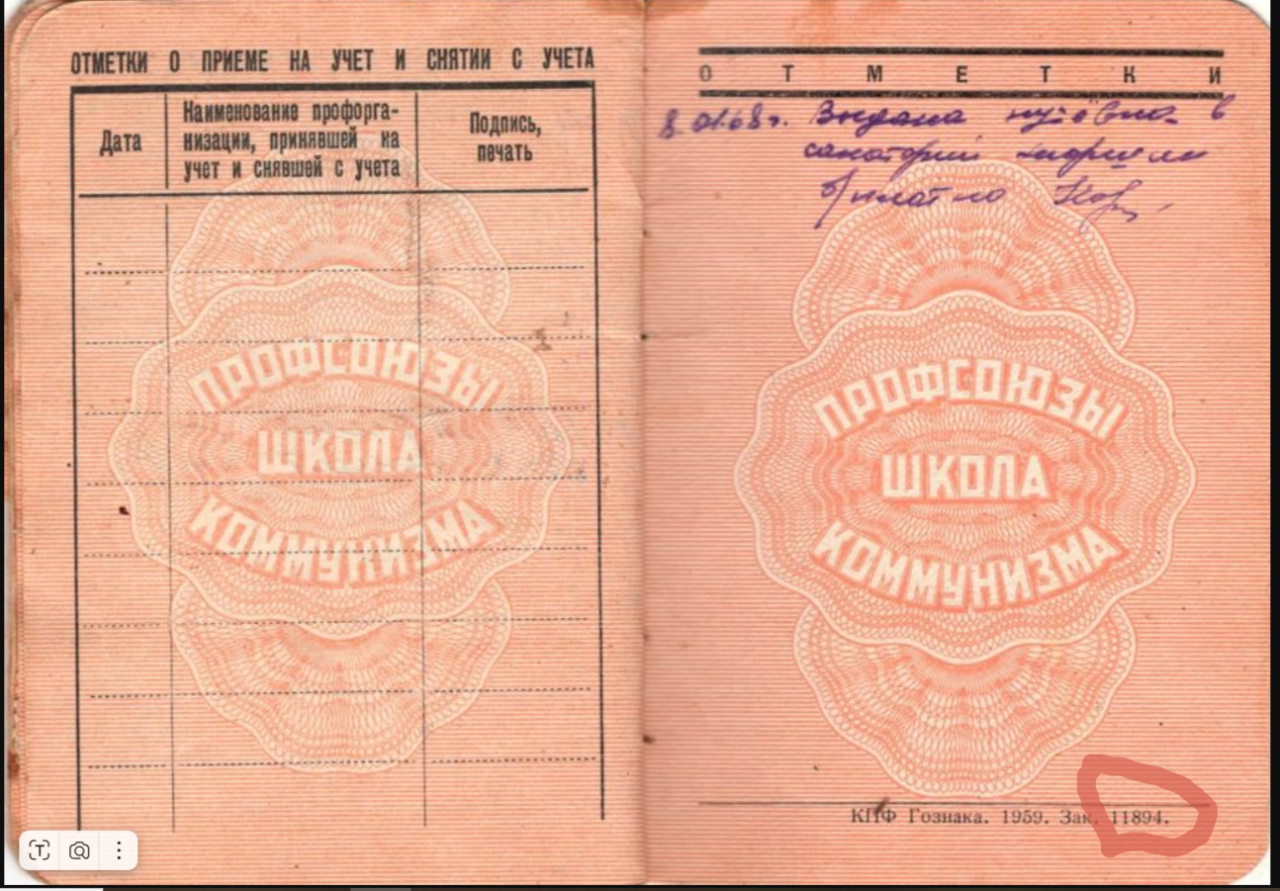 ОТМЕТКИ О ПРИЕМЕ НА УЧЕТ И СНЯТИИ С УЧЕТА
Дата
Наименование профорга-
низации, принявшей на
учет и снявшей с учета
Подпись,
печать
ПРОФСОЮЗЫ
ШКОЛА
КОММУНИЗМА
ОТМЕТКИ
8.01.68г. Выдана путёвка в
санаторий
ПРОФСОЮЗЫ
ШКОЛА
КОММУНИЗМА
КПФ Гознака. 1959. Зак. 11894.